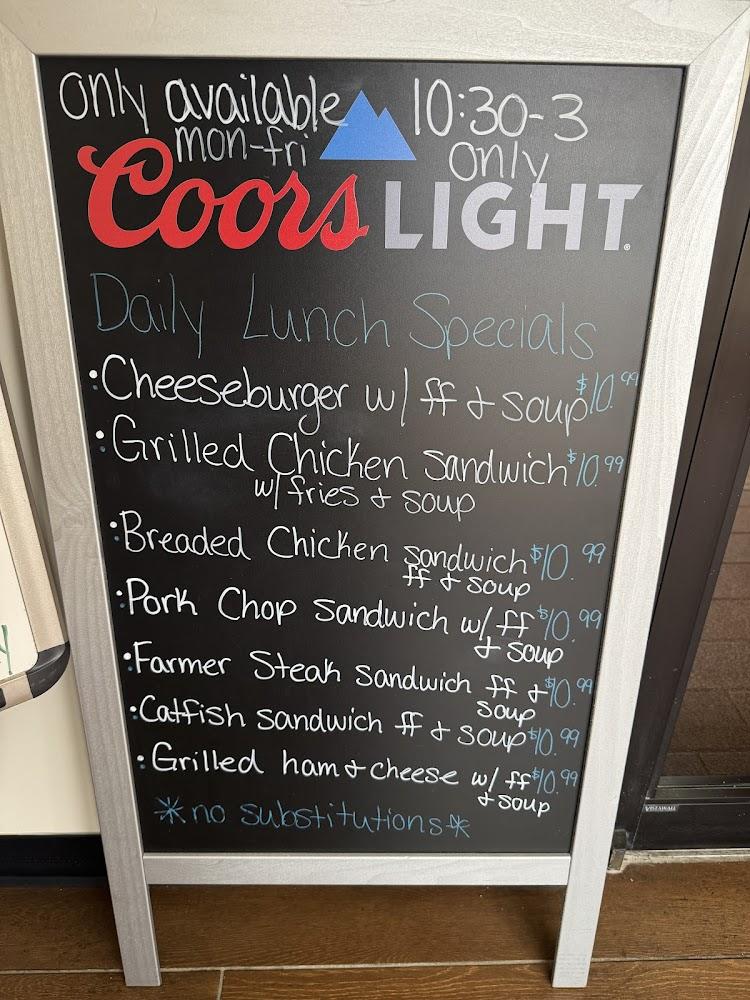 only available 10:30-3
mon-fri only
Coors LIGHT®
Daily Lunch Specials
• Cheeseburger w/ ff & soup $10.99
• Grilled Chicken sandwich $10.99
w/ fries & soup
• Breaded Chicken sandwich $10.99
ff & soup
• Pork Chop sandwich w/ ff $10.99
& soup
• Farmer Steak sandwich ff & $10.99
soup
• Catfish sandwich ff & soup $10.99
• Grilled ham & cheese w/ ff $10.99
& soup
*no substitutions*
VISTAWALL